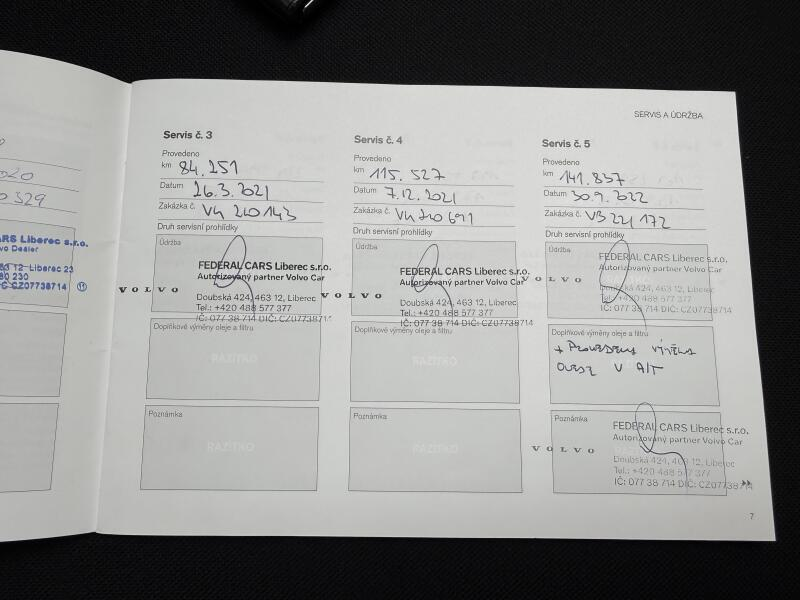 020
0 329
CARS Liberec s.r.o.
Volvo Dealer
463 12 Liberec 23
80 230
CZ07738714 11
SERVIS A ÚDRŽBA
Servis č. 3
Provedeno
km 84.251
Datum 26.3.2021
Zakázka č. V4 210143
Druh servisní prohlídky
Údržba
VOLVO
FEDERAL CARS Liberec s.r.o.
Autorizovaný partner Volvo Car
Doubská 424, 463 12, Liberec
Tel.: +420 488 577 377
IČ: 077 38 714 DIČ: CZ07738714
Doplňkové výměny oleje a filtru
RAZÍTKO
Poznámka
RAZÍTKO
Servis č. 4
Provedeno
km 115.527
Datum 7.12.2021
Zakázka č.
Druh servisní prohlídky
Údržba
VOLVO
FEDERAL CARS Liberec s.r.o.
Autorizovaný partner Volvo Car
Doubská 424, 463 12, Liberec
Tel.: +420 488 577 377
IČ: 077 38 714 DIČ: CZ07738714
Doplňkové výměny oleje a filtru
RAZÍTKO
Poznámka
RAZÍTKO
Servis č. 5
Provedeno
km 141.837
Datum 30.9.2022
Zakázka č. VB 221172
Druh servisní prohlídky
Údržba
VOLVO
FEDERAL CARS Liberec s.r.o.
Autorizovaný partner Volvo Car
Doubská 424, 463 12, Liberec
Tel.: +420 488 577 377
IČ: 077 38 714 DIČ: CZ07738714
Doplňkové výměny oleje a filtru
+ PROVEDENA VÝMĚNA
OLEJE V A/T
Poznámka
VOLVO
FEDERAL CARS Liberec s.r.o.
Autorizovaný partner Volvo Car
Doubská 424, 463 12, Liberec
Tel.: +420 488 577 377
IČ: 077 38 714 DIČ: CZ07738714
7